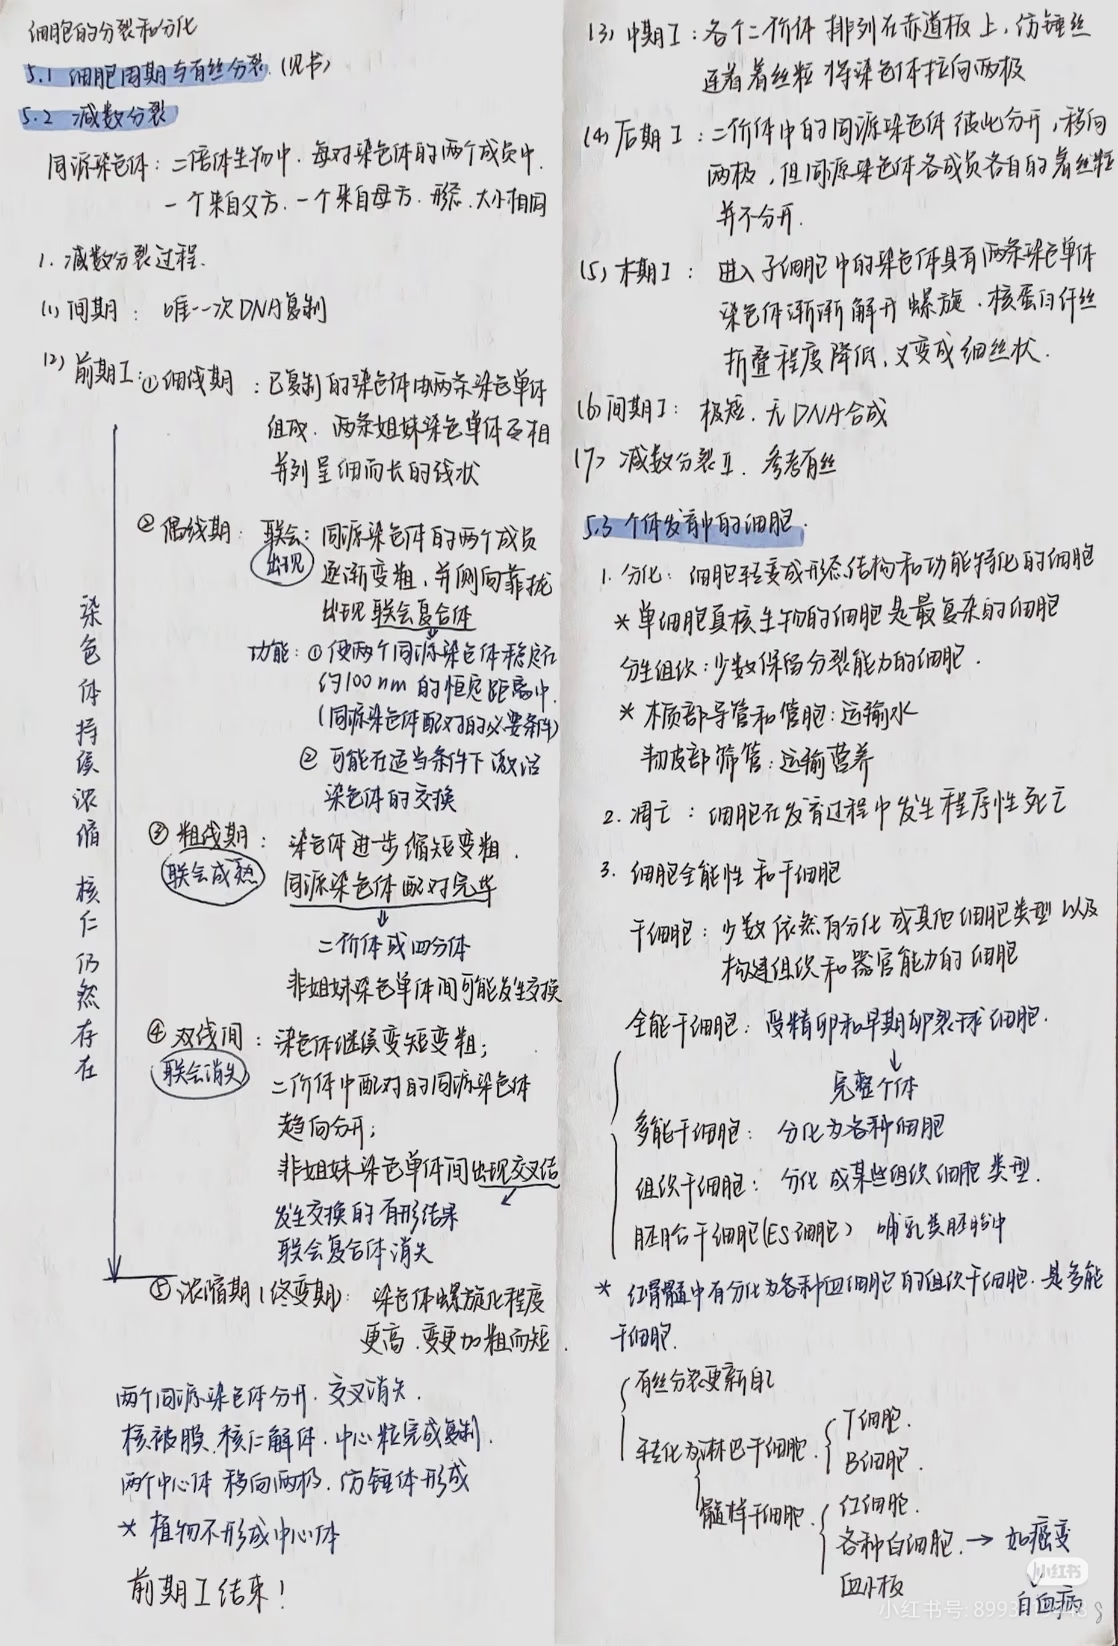 细胞的分裂和分化
5.1 细胞周期与有丝分裂 (见书)
5.2 减数分裂
同源染色体: 二倍体生物中. 每对染色体的两个成员中.
一个来自父方. 一个来自母方. 形态. 大小相同
1. 减数分裂过程.
(1) 间期: 唯一次DNA复制
(2) 前期I: ①细线期: 已复制的染色体由两条染色单体
组成. 两条姐妹染色单体互相
并列呈细而长的线状
② 偶线期: 联会: 同源染色体的两个成员
出现 逐渐变粗, 并侧向靠拢
出现联会复合体
功能: ① 使两个同源染色体稳定在
约100nm 的恒定距离中.
(同源染色体配对的必要条件)
② 可能在适当条件下激活
染色体的交换
③ 粗线期: 染色体进步缩短变粗.
联会成熟 同源染色体配对完毕
↓
二价体或四分体
非姐妹染色单体间可能发生交换
④ 双线间: 染色体继续变短变粗;
联会消失 二价体中配对的同源染色体
趋向分开;
非姐妹染色单体间出现交叉结
发生交换的有形结果
联会复合体消失
染色体持续浓缩 核仁仍然存在
⑤ 浓缩期 (终变期): 染色体螺旋化程度
更高. 变更加粗而短.
两个同源染色体分开. 交叉消失.
核被膜. 核仁解体. 中心粒完成复制.
两个中心体移向两极. 纺锤体形成
* 植物不形成中心体
前期I结束!
(3) 中期I: 各个二价体 排列在赤道板上, 纺锤丝
连着着丝粒 将染色体拉向两极
(4) 后期I: 二价体中的同源染色体彼此分开, 移向
两极, 但同源染色体各成员各自的着丝粒
并不分开.
(5) 末期I: 进入子细胞中的染色体具有两条染色单体
染色体渐渐解开螺旋. 核蛋白纤丝
折叠程度降低, 又变成细丝状.
(6) 间期I: 极短. 无DNA合成
(7) 减数分裂II. 参考有丝
5.3 个体发育中的细胞.
1. 分化: 细胞转变成形态结构和功能特化的细胞
* 单细胞真核生物的细胞是最复杂的细胞
分生组织: 少数保留分裂能力的细胞.
* 木质部导管和管胞: 运输水
韧皮部筛管: 运输营养
2. 凋亡: 细胞在发育过程中发生程序性死亡
3. 细胞全能性和干细胞
干细胞: 少数依然有分化成其他细胞类型以及
构建组织和器官能力的细胞
全能干细胞: 受精卵和早期卵裂球细胞.
↓
完整个体
多能干细胞: 分化为各种细胞
组织干细胞: 分化成某些组织细胞类型.
胚胎干细胞(ES细胞) 哺乳类胚胎中
* 红骨髓中有分化为各种血细胞的组织干细胞. 是多能
干细胞.
有丝分裂更新自己
转化为淋巴干细胞. T细胞.
B细胞.
髓样干细胞. 红细胞.
各种白细胞. → 如癌变
血小板 ↓ 白血病
小红书
小红书号: 8993
8